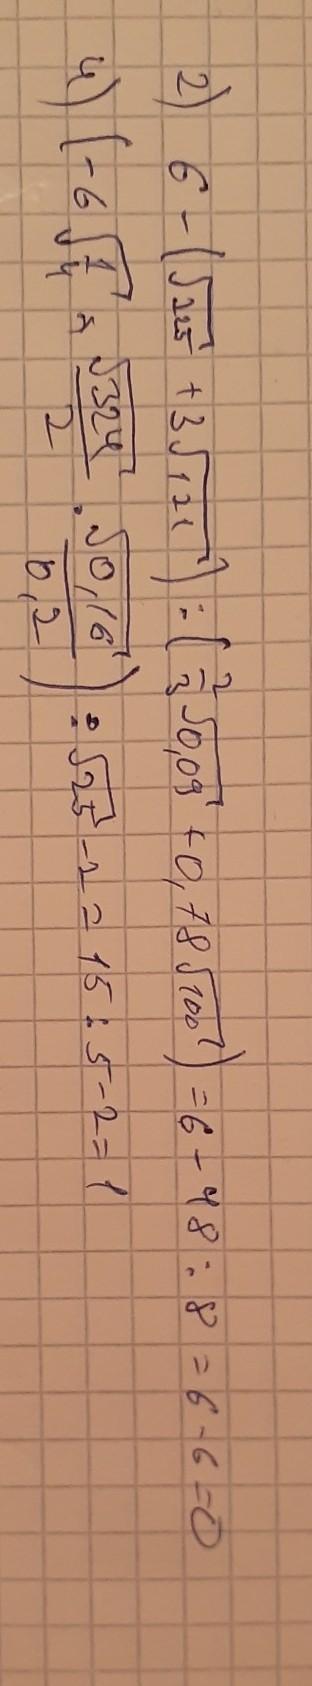 2) 6 - (√225 + 3√121) : (2/3 √0,09 + 0,78√100) = 6 - 48 : 8 = 6 - 6 = 0
4) (-6√1/4 + √324/2 · √0,16/0,2) : √25 - 2 = 15 : 5 - 2 = 1